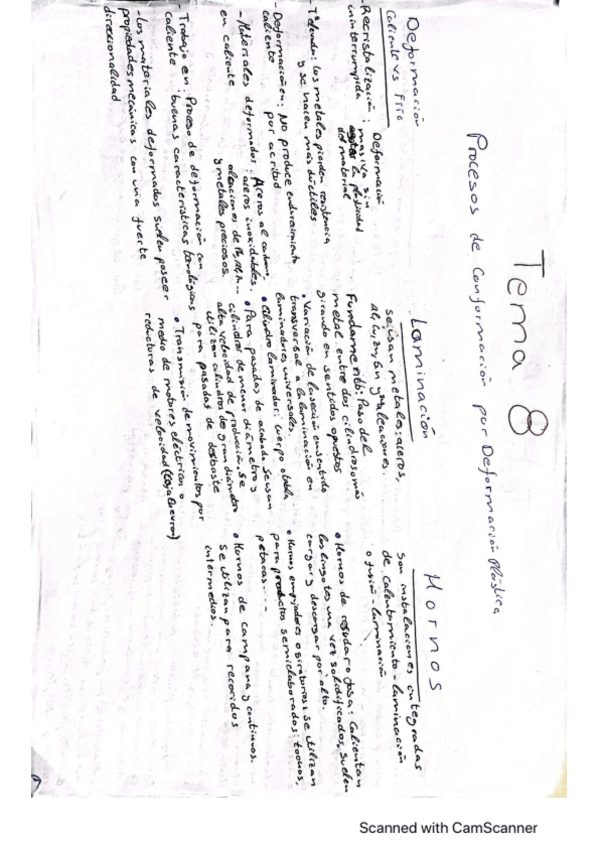 Tema 8
Procesos de Conformación por Deformación Plástica
Deformación
Caliente vs Frío
- Recristalización: Deformación
ininterrumpida masiva sin
la plasticidad
del material
- Tª elevada: los metales pierden resistencia
y se hacen más dúctiles
- Deformación en: NO produce endurecimiento
caliente por acritud
- Materiales deformados: Aceros al carbono,
en caliente aceros inoxidables,
aleaciones de
y metales preciosos.
- Trabajo en: Proceso de deformación con
caliente buenas características
- Los materiales deformados suelen poseer
propiedades mecánicas con una fuerte
direccionalidad
Laminación
Se usan metales: aceros,
Al, Cu, Zn, Sn y aleaciones.
Fundamento: Paso del
metal entre dos cilindros o más
girando en sentidos opuestos
• Variación de la sección en sentido
transversal a la laminación en
laminadores universales.
• Cilindro laminador: cuerpo o tabla
• Para pasadas de acabado se usan
cilindros de menor diámetro y
alta velocidad de producción. Se
utilizan cilindros de gran diámetro
para pasadas de desbaste
• Transmisión de movimientos por
medio de motores eléctricos o
reductoras de velocidad
Hornos
Son instalaciones integradas
de calentamiento - laminación
o fusión - laminación
• Hornos de o fosa: Calientan
los lingotes una vez solidificados, suelen
cargar y descargar por alto.
• Hornos empujadores o giratorios: se utilizan
para productos semielaborados: tochos,
petacas...
• Hornos de campana y continuos.
Se utilizan para recocidos
intermedios.
Scanned with CamScanner